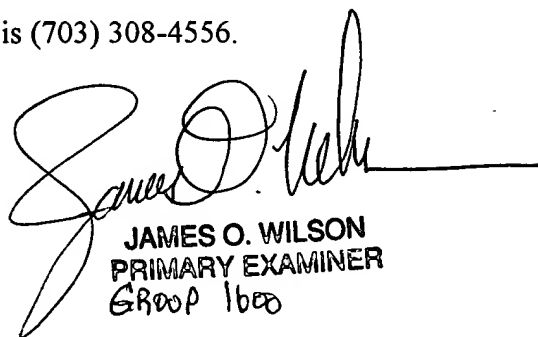 is (703) 308-4556.
James O. Wilson
JAMES O. WILSON
PRIMARY EXAMINER
GROUP 1600